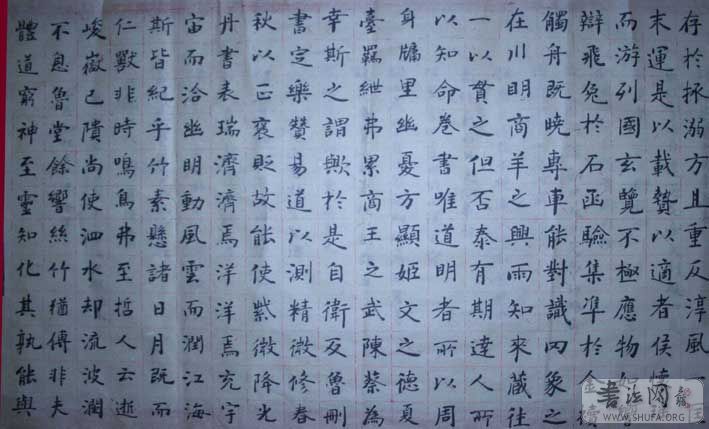 存於拯溺方且重反淳風一
末運是以載贄以適者侯懷
而游列國玄覽不極應物如
辯飛兔於石函驗集隼於金櫝
觸舟既曉專車能對識四象之
在川明商羊之興雨知來藏往
一以貫之但否泰有期達人所
以知命卷書唯道明者所以周
身牖里幽憂方顯姬文之德夏
臺羈紲弗累商王之武陳蔡為
幸斯之謂歟於是自衛反魯刪
書定樂贊易道以測精微修春
秋以正褒貶故能使紫微降光
丹書表瑞濟濟焉洋洋焉充宇
宙而洽幽明動風雲而潤江海
斯皆紀乎竹素懸諸日月既而
仁獸非時鳴鳥弗至哲人云逝
峻嶽已隤尚使泗水却流波瀾
不息魯堂餘響絲竹猶傳非夫
體道窮神至靈知化其孰能與
書法网
WWW.SHUFA.ORG